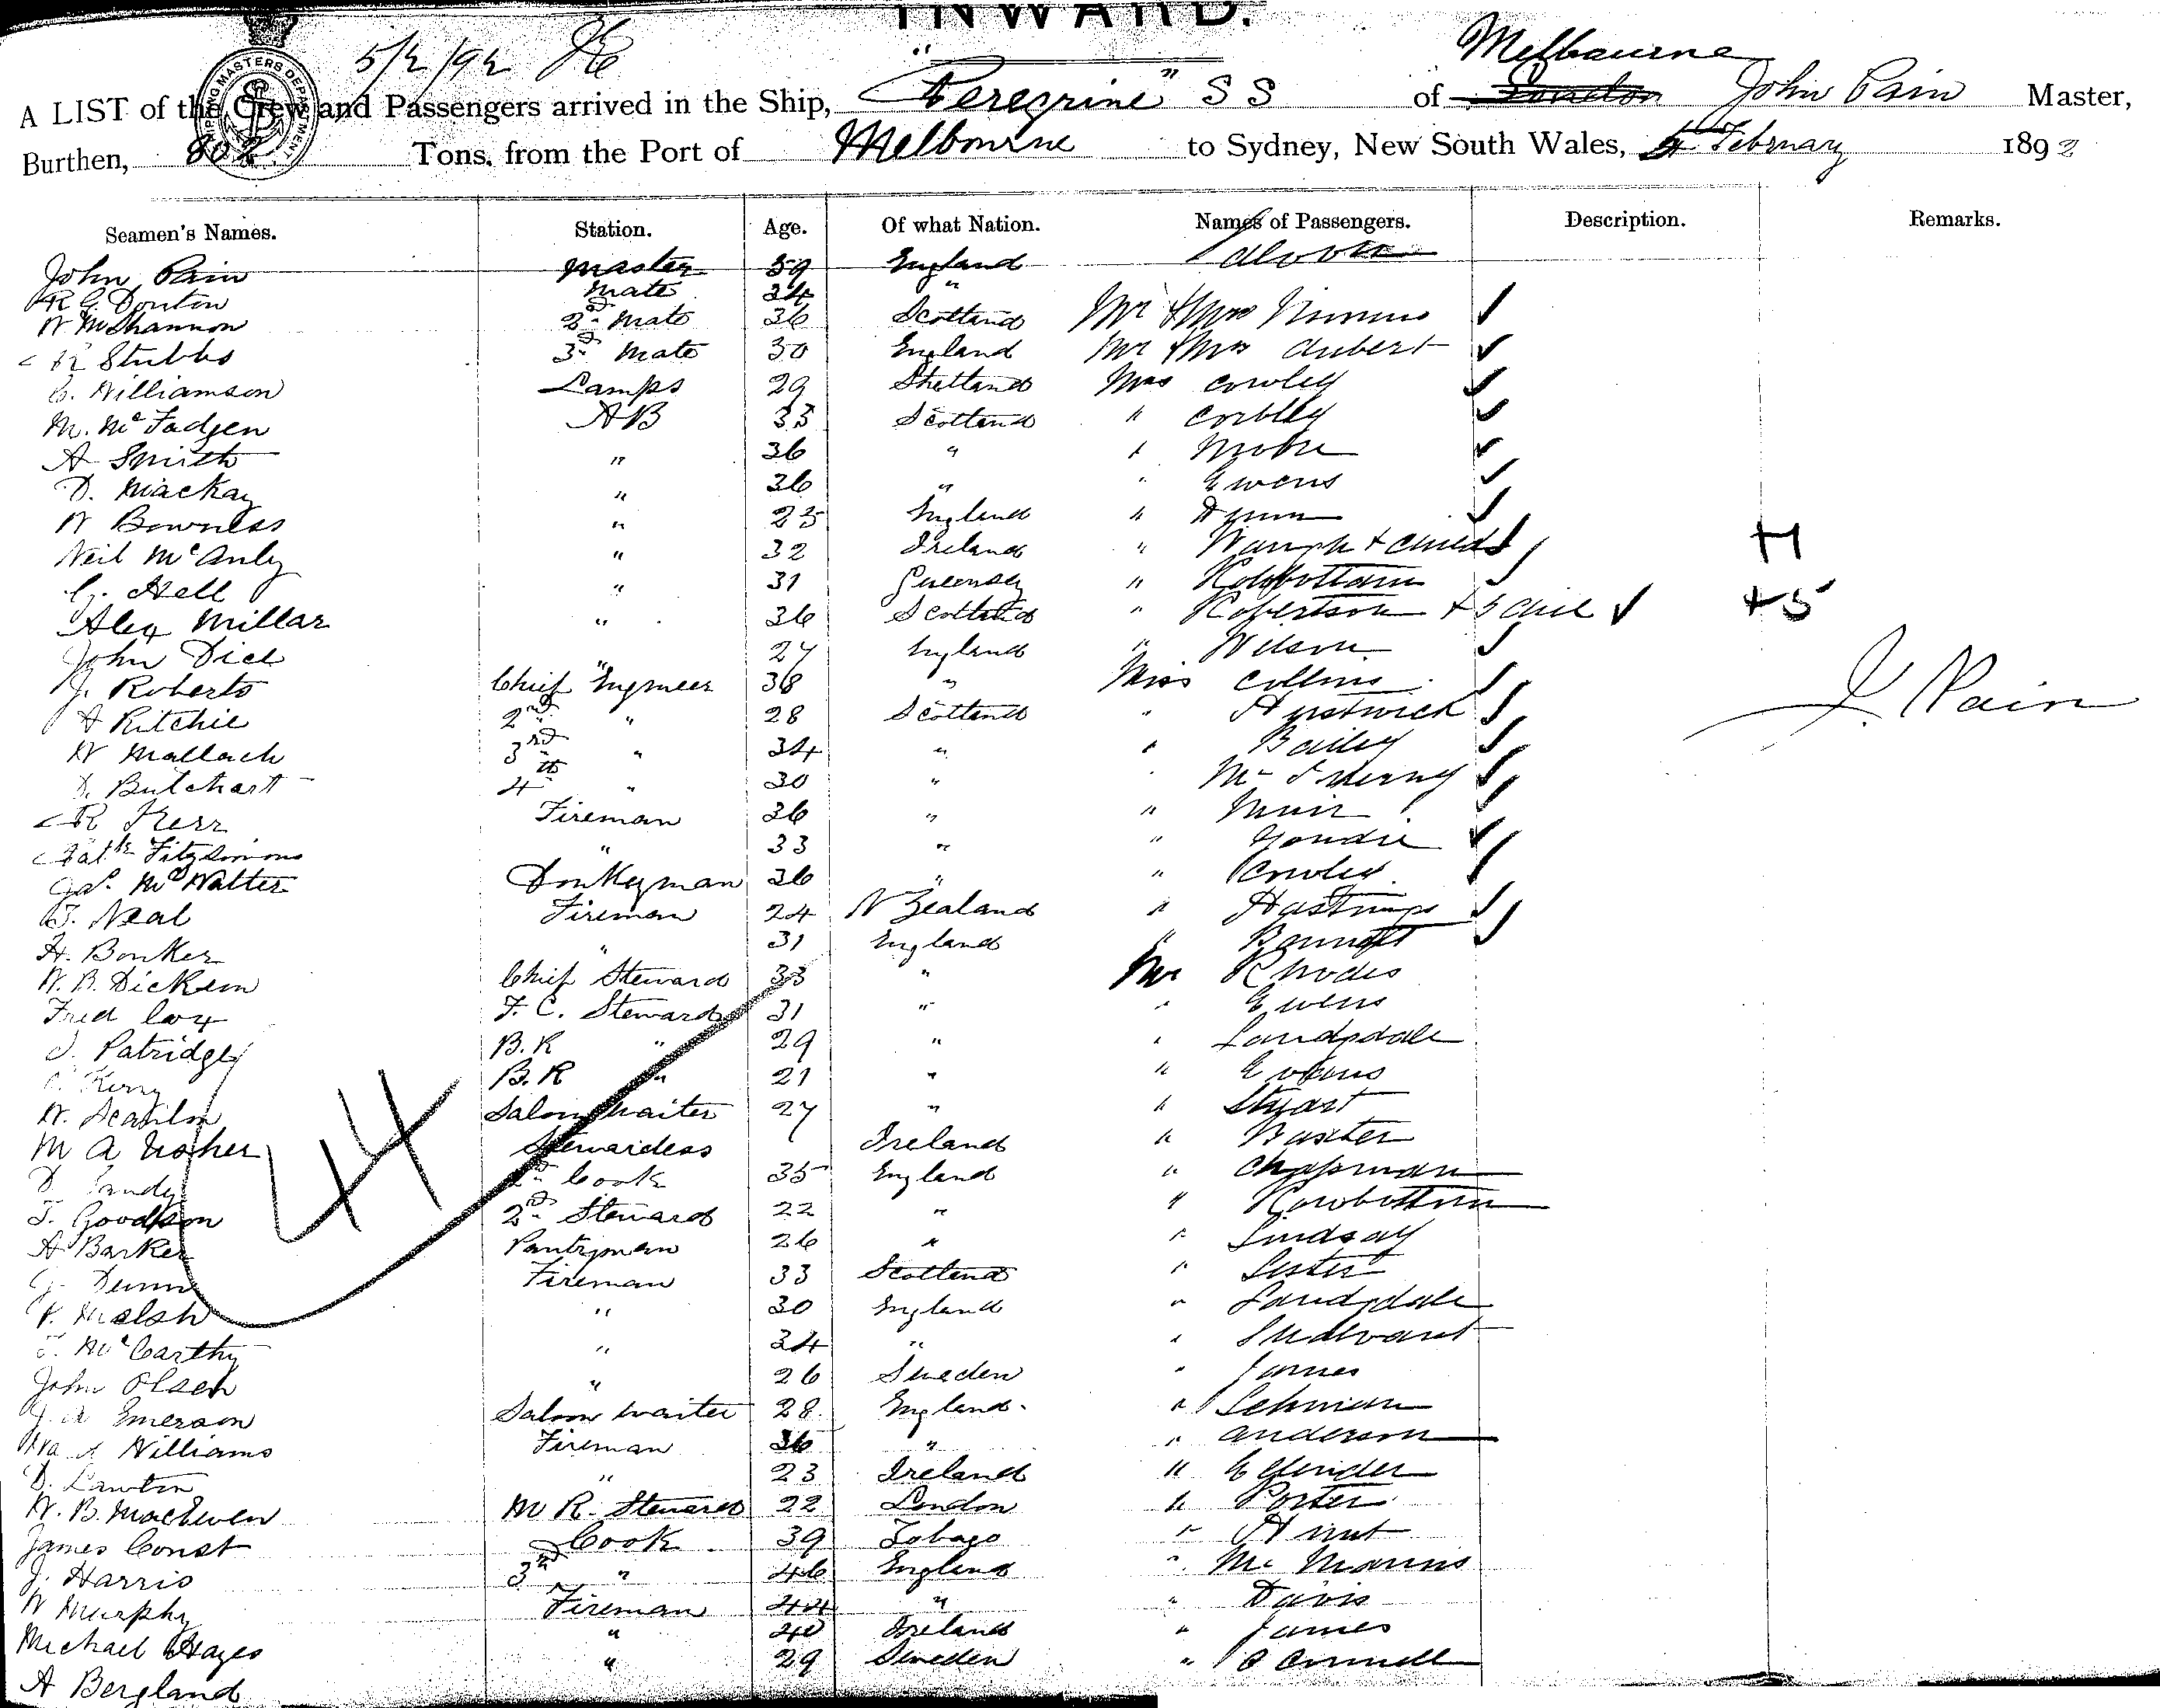 INWARD.
5/2/92
A LIST of the Crew and Passengers arrived in the Ship, "Peregrine" S S of London Melbourne John Pain Master,
Burthen, Tons, from the Port of Melbourne to Sydney, New South Wales, February 1892
SHIPPING MASTERS DEPARTMENT
Seamen's Names. Station. Age. Of what Nation. Names of Passengers. Description. Remarks.
John Pain Master 59 England Saloon
R G Douton Mate 34 "
W McShannon 2nd Mate 36 Scotland Mr & Mrs Nimmo
R Stubbs 3rd Mate 30 England Mr & Mrs Aubert
Williamson Lamps 29 Shetland Mrs Cowley
M. McFadgen AB 33 Scotland " Corbley
A Smith " 36 " " Moore
D. Mackay " 36 " " Ewens
W Bowness " 25 England " Dunn
Neil McAuly " 32 Ireland " Waugh + child H
G. Hell " 31 Guernsey " Robbottam
Alex Millar " 36 Scotland " Robertson + 5 chil +5
John Dick " 27 England " Wilson
J. Roberts Chief Engineer 38 " Miss Collins J. Pain
A Ritchie 2nd " 28 Scotland "
W Mallach 3rd " 34 " " Bailey
D. Butchart 4th " 30 "
R Kerr Fireman 36 " " Muir
Patk Fitzsimons " 33 " " Goudie
Jas. McWalter Donkeyman 36 " " Cowley
Neal Fireman 24 N Zealand " Hastings
H. Bonker " 31 England " Bennett
W. B. Dickem Chief Steward 33 " Mr Rhodes
Fred Cox F. C. Steward 31 " " Ewens
J. Patridge B.R " 29 " " Landsdale
Kerry B.R " 21 " " Evans
W. Scanlon Saloon Waiter 27 " " Stuart
M A Usher Stewardess Ireland " Baxter
D. Cook 35 England " Chapman
T. Goodson 2nd Steward 22 " " Rowbottom
A Barker Pantryman 26 " " Lindsay
G. Dunn Fireman 33 Scotland " Lister
P. Walsh " 30 England " Landsdale
T. McCarthy " 34 " " Sturdvant
John Olsen " 26 Sweden " James
J. A Emerson Saloon Waiter 28 England " Lehman
Williams Fireman 36 " " Anderson
D. Lawton " 23 Ireland "
W. B. MacEwen M R. Steward 22 London " Porter
James Const Cook 39 Tobago "
J. Harris 3rd " 46 England " McManus
W Murphy Fireman 44 " " Davis
Michael Hayes " 40 Ireland " James
A Bergland " 29 Sweden " O Connell
44